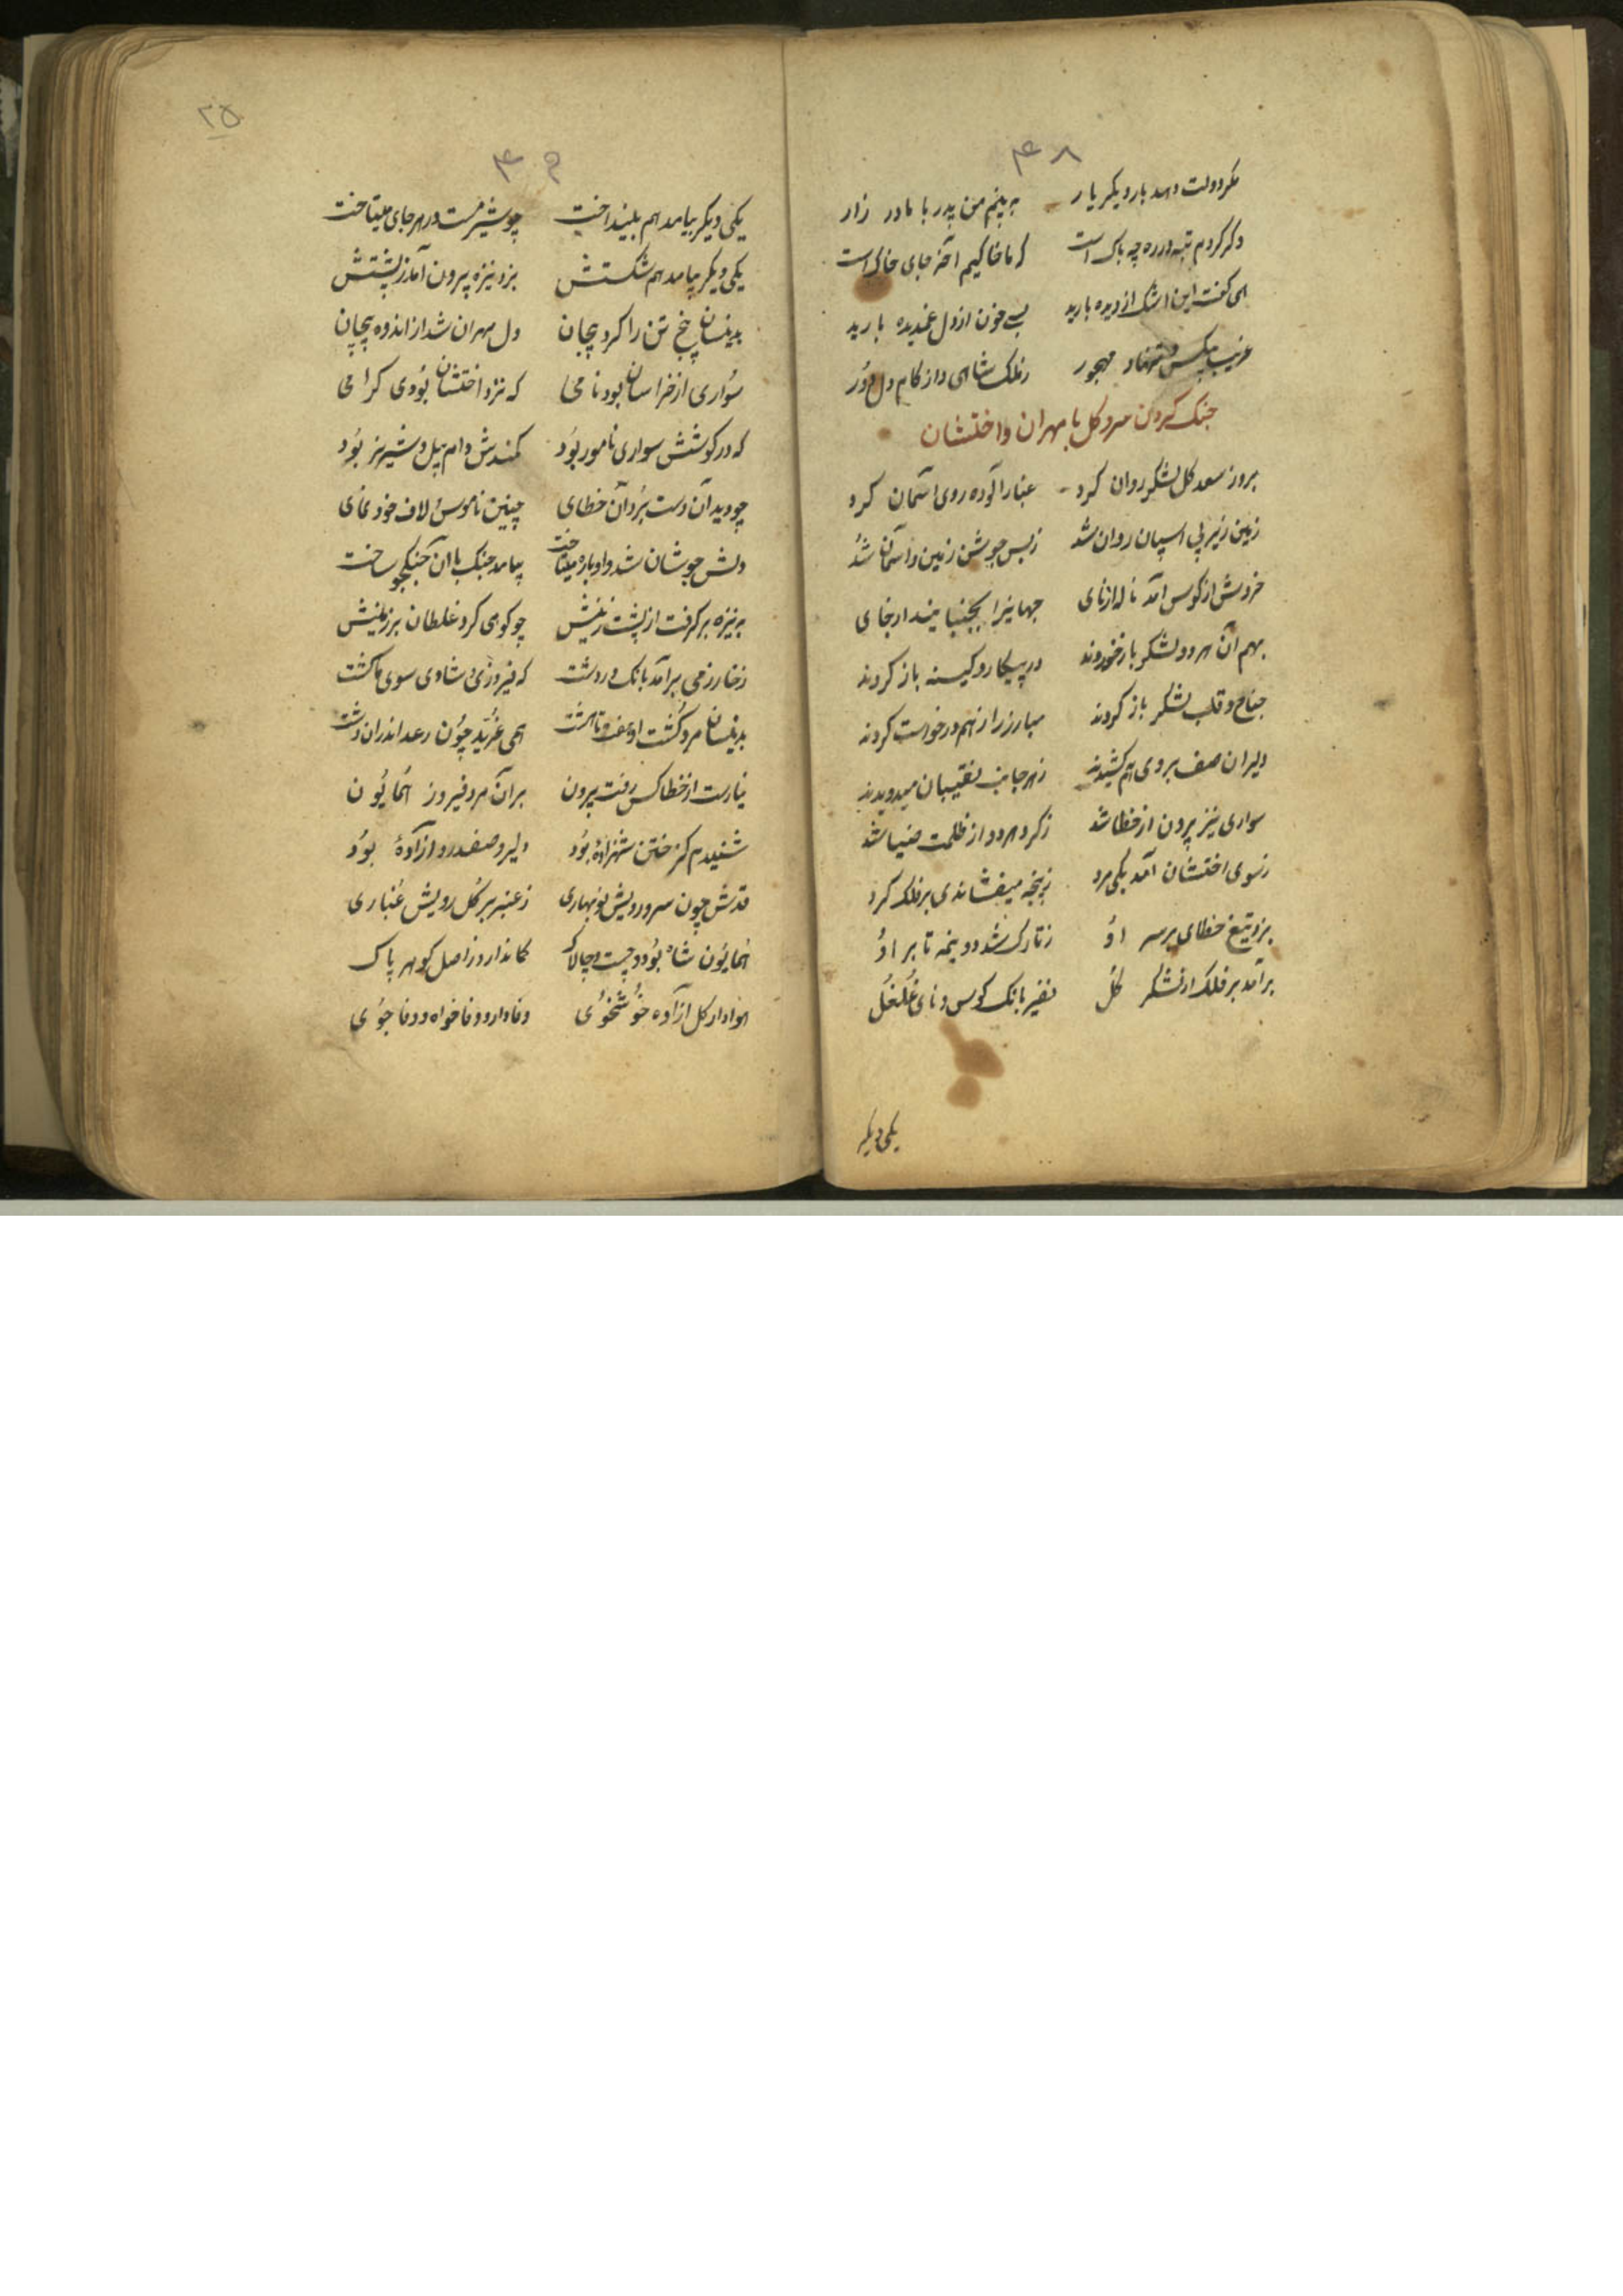 ۴۸
مکر دولت دهد بار دیکر یار به بینم من پدر با مادر زار
وکر کردم تبه در ره چه باک است که ما خاکیم آخر جای خاک است
همی کفت این اشک از دیده بارید بسی خون از دل غمدیده بارید
غریب بیکس و تنها و مهجور ز ملک شاهی و از کام دل دور
جنک کردن سرو کل با مهران واختشان
بروز سعد کل لشکر روان کرد غبار آلوده روی آسمان کرد
زمین زیر پی اسپان روان شد ز بس جوشن زمین و آسمان شد
خروش از کوس آمد ناله از نای جهانیرا بجنبانید از جای
بهم آن هر دو لشکر باز خوردند در پیکار و کینه باز کردند
جناح و قلب لشکر باز کردند مبارز را ز هم درخواست کردند
دلیران صف بروی هم کشیدند ز هر جانب نقیبان میدویدند
سواری نیز بیرون از خطا شد ز کرد هر دو از ظلمت ضیا شد
ز سوی اختشان آمد یکی مرد ز پنجه میفشاندی بر فلک کرد
بزد تیغ خطای بر سر او ز تارک شد دو نیمه تا بر او
برآمد بر فلک از لشکر کل نفیر بانک کوس و نای غلغل
یکی دیکر
۲۵
۴۹
یکی دیکر بیامد هم بیند اخت چو شیر مست در هر جای میتاخت
یکی دیکر بیامد هم شکستش بزد نیزه بیرون آمد ز پشتش
بدینسان پنج تن را کرد بیجان دل مهران شد از اندوه پیچان
سواری از خراسان بود نامی که نزد اختشان بودی کرامی
که در کوشش سواری نامور بود کمندش دام پیل و شیر نر بود
چو دید آن دست برد آن خطای چنین ناموس و لاف خود نمای
دلش جوشان شد و او باره میتاخت بیامد جنک با آن جنکجو ساخت
به نیزه بر کرفت از پشت زینش چو کوهی کرد غلطان بر زمینش
ز خارزمی برآمد بانک در دشت که فیروزی و شادی سوی ما کشت
بدینسان مرد کشت او هفت تا هشت همی غرید چون رعد اندران دشت
نیارست از خطا کس رفت بیرون بران مرد فیروز همایون
شنیدم کز ختن شهزاده بود دلیر و صفدر و آزاده بود
قدش چون سرو رویش نوبهاری ز عنبر بر کل رویش غباری
همایون شاه بود و چست و چالاک کماندار و ز اصل کوهر پاک
هوادار کل آزاده خوشخوی وفادار و وفا خواه و وفا جوی